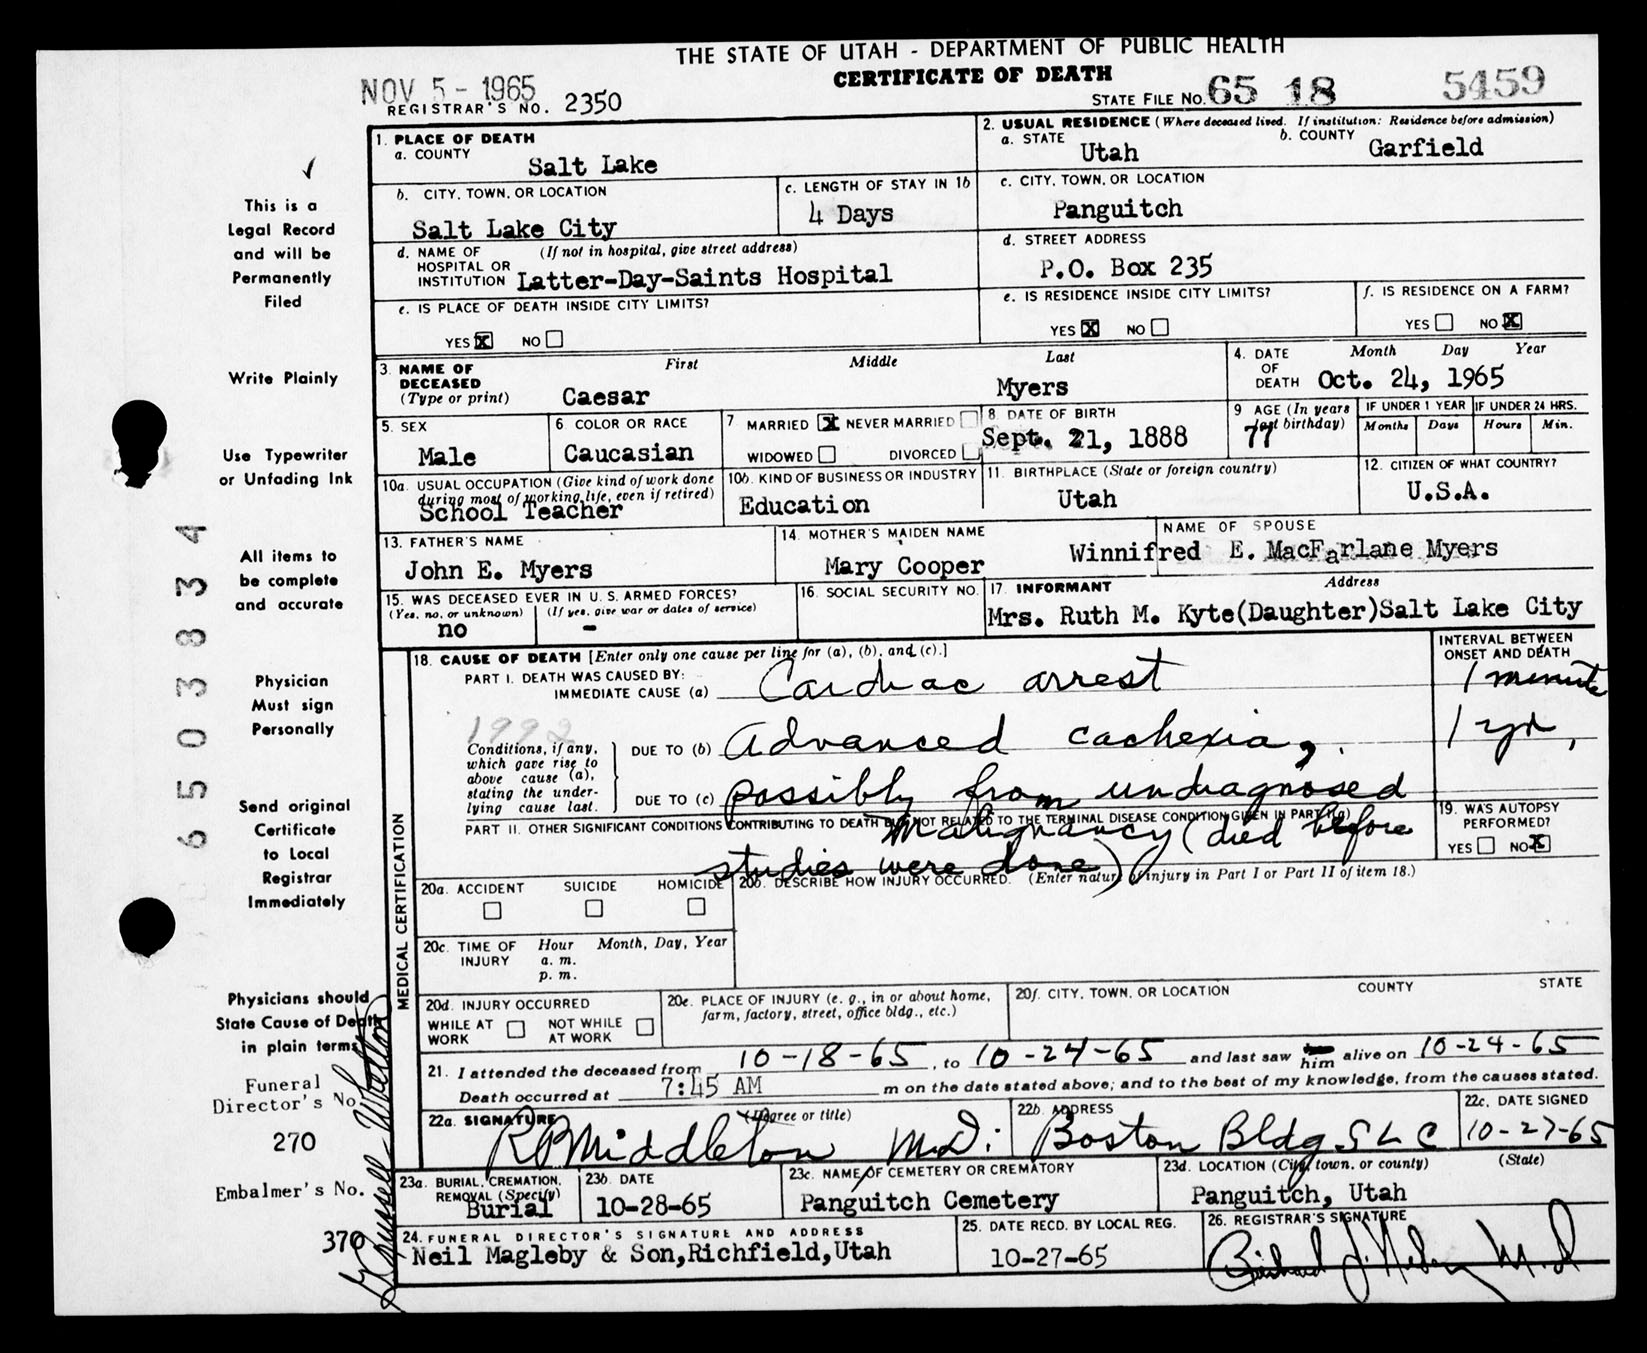 THE STATE OF UTAH - DEPARTMENT OF PUBLIC HEALTH
CERTIFICATE OF DEATH
NOV 5 - 1965
REGISTRAR'S NO. 2350
STATE FILE NO. 65 18 5459
1. PLACE OF DEATH
a. COUNTY
Salt Lake
2. USUAL RESIDENCE (Where deceased lived. If institution: Residence before admission)
a. STATE Utah b. COUNTY Garfield
b. CITY, TOWN, OR LOCATION
Salt Lake City
c. LENGTH OF STAY IN 1b
4 Days
c. CITY, TOWN, OR LOCATION
Panguitch
d. NAME OF HOSPITAL OR INSTITUTION (If not in hospital, give street address)
Latter-Day-Saints Hospital
d. STREET ADDRESS
P.O. Box 235
e. IS PLACE OF DEATH INSIDE CITY LIMITS?
YES X NO
e. IS RESIDENCE INSIDE CITY LIMITS?
YES X NO
f. IS RESIDENCE ON A FARM?
YES NO X
3. NAME OF DECEASED (Type or print)
First Middle Last
Caesar Myers
4. DATE OF DEATH Month Day Year
Oct. 24, 1965
5. SEX
Male
6. COLOR OR RACE
Caucasian
7 MARRIED X NEVER MARRIED
WIDOWED DIVORCED
8. DATE OF BIRTH
Sept. 21, 1888
9 AGE (In years last birthday)
77
IF UNDER 1 YEAR IF UNDER 24 HRS.
Months Days Hours Min.
10a. USUAL OCCUPATION (Give kind of work done during most of working life, even if retired)
School Teacher
10b. KIND OF BUSINESS OR INDUSTRY
Education
11. BIRTHPLACE (State or foreign country)
Utah
12. CITIZEN OF WHAT COUNTRY?
U.S.A.
13. FATHER'S NAME
John E. Myers
14. MOTHER'S MAIDEN NAME
Mary Cooper
NAME OF SPOUSE
Winnifred E. MacFarlane Myers
15. WAS DECEASED EVER IN U. S. ARMED FORCES?
(Yes, no, or unknown) (If yes, give war or dates of service)
no -
16. SOCIAL SECURITY NO.
17. INFORMANT Address
Mrs. Ruth M. Kyte(Daughter)Salt Lake City
MEDICAL CERTIFICATION
18. CAUSE OF DEATH [Enter only one cause per line for (a), (b), and (c).]
INTERVAL BETWEEN ONSET AND DEATH
PART I. DEATH WAS CAUSED BY:
IMMEDIATE CAUSE (a) Cardiac arrest
1 minute
1992
Conditions, if any, which gave rise to above cause (a), stating the underlying cause last.
DUE TO (b) Advanced cachexia,
1 yr,
DUE TO (c) possibly from undiagnosed
PART II. OTHER SIGNIFICANT CONDITIONS CONTRIBUTING TO DEATH BUT NOT RELATED TO THE TERMINAL DISEASE CONDITION GIVEN IN PART I(a)
Malignancy (died before
studies were done)
19. WAS AUTOPSY PERFORMED?
YES NO X
20a. ACCIDENT SUICIDE HOMICIDE
20b. DESCRIBE HOW INJURY OCCURRED. (Enter nature of injury in Part I or Part II of item 18.)
20c. TIME OF INJURY Hour Month, Day, Year
a. m.
p. m.
20d. INJURY OCCURRED
WHILE AT WORK NOT WHILE AT WORK
20e. PLACE OF INJURY (e. g., in or about home, farm, factory, street, office bldg., etc.)
20f. CITY, TOWN, OR LOCATION COUNTY STATE
21. I attended the deceased from 10-18-65, to 10-24-65 and last saw him alive on 10-24-65
Death occurred at 7:45 AM m on the date stated above; and to the best of my knowledge, from the causes stated.
22a. SIGNATURE (Degree or title)
R P Middleton M.D.
22b. ADDRESS
Boston Bldg. S L C
22c. DATE SIGNED
10-27-65
23a. BURIAL, CREMATION, REMOVAL (Specify)
Burial
23b. DATE
10-28-65
23c. NAME OF CEMETERY OR CREMATORY
Panguitch Cemetery
23d. LOCATION (City, town, or county) (State)
Panguitch, Utah
24. FUNERAL DIRECTOR'S SIGNATURE AND ADDRESS
Neil Magleby & Son,Richfield,Utah
25. DATE RECD. BY LOCAL REG.
10-27-65
26. REGISTRAR'S SIGNATURE
This is a
Legal Record
and will be
Permanently
Filed
Write Plainly
Use Typewriter
or Unfading Ink
All items to
be complete
and accurate
Physician
Must sign
Personally
Send original
Certificate
to Local
Registrar
Immediately
Physicians should
State Cause of Death
in plain terms
Funeral
Director's No.
270
Embalmer's No.
370
65 03834